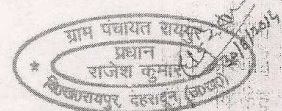 ग्राम पंचायत रायपुर
प्रधान
राजेश कुमार
वि०ख०रायपुर, देहरादून (उ०ख०)